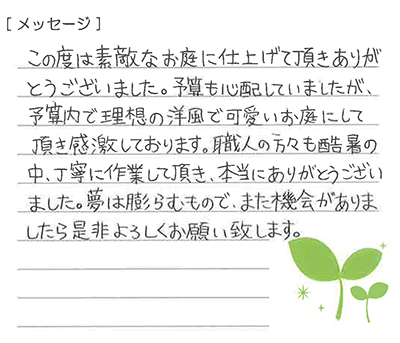 [メッセージ]
この度は素敵なお庭に仕上げて頂きありが
とうございました。予算も心配していましたが、
予算内で理想の洋風で可愛いお庭にして
頂き感激しております。職人の方々も酷暑の
中、丁寧に作業して頂き、本当にありがとうござい
ました。夢は膨らむもので、また機会がありま
したら是非よろしくお願い致します。